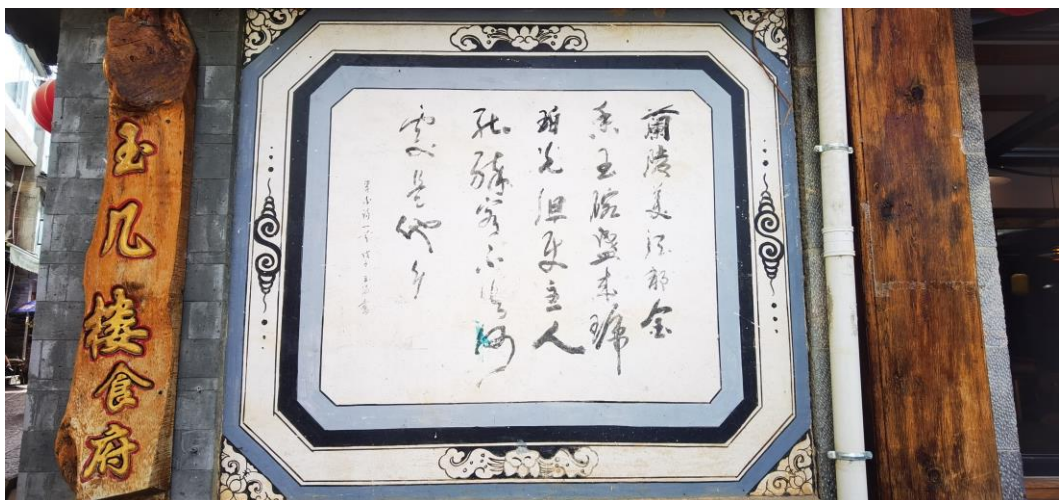 玉几楼食府
蘭陵美酒郁金
香玉碗盛来琥
珀光但使主人
能醉客不知何
處是他乡